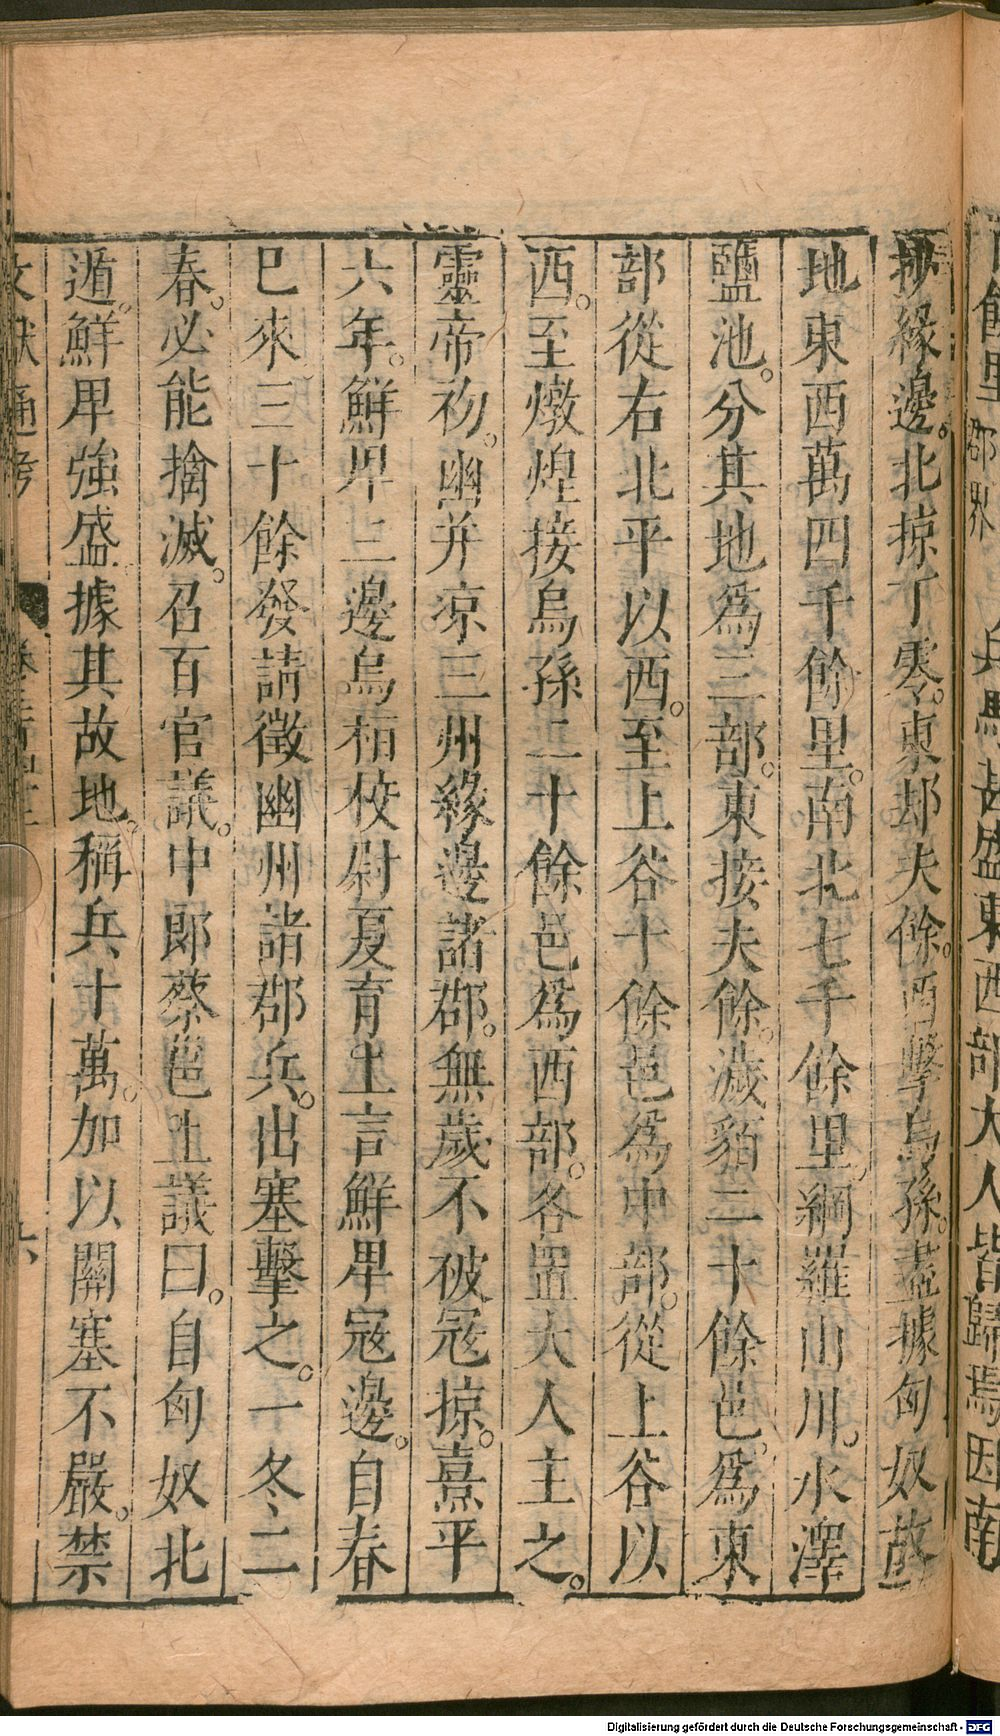 餘里
兵馬甚盛東西部大人皆歸焉因南
抄緣邊。北掠丁零。東却夫餘。西擊烏孫。盡據匈奴故
地東西萬四千餘里。南北七千餘里。網羅山川。水澤
鹽池。分其地爲三部。東接夫餘。濊貊二十餘邑。爲東
部從右北平以西。至上谷十餘邑爲中部。從上谷以
西。至燉煌接烏孫二十餘邑爲西部。各置大人主之。
靈帝初。幽并涼三州緣邊諸郡。無歲不被寇掠。熹平
六年。鮮卑三邊烏桓校尉夏育上言鮮卑寇邊。自春
巳來三十餘發請徵幽州諸郡兵。出塞擊之。一冬二
春。必能擒滅。召百官議。中郎蔡邕上議曰。自匈奴北
遁。鮮卑強盛據其故地。稱兵十萬。加以關塞不嚴。禁
文獻通考
Digitalisierung gefördert durch die Deutsche Forschungsgemeinschaft - DFG